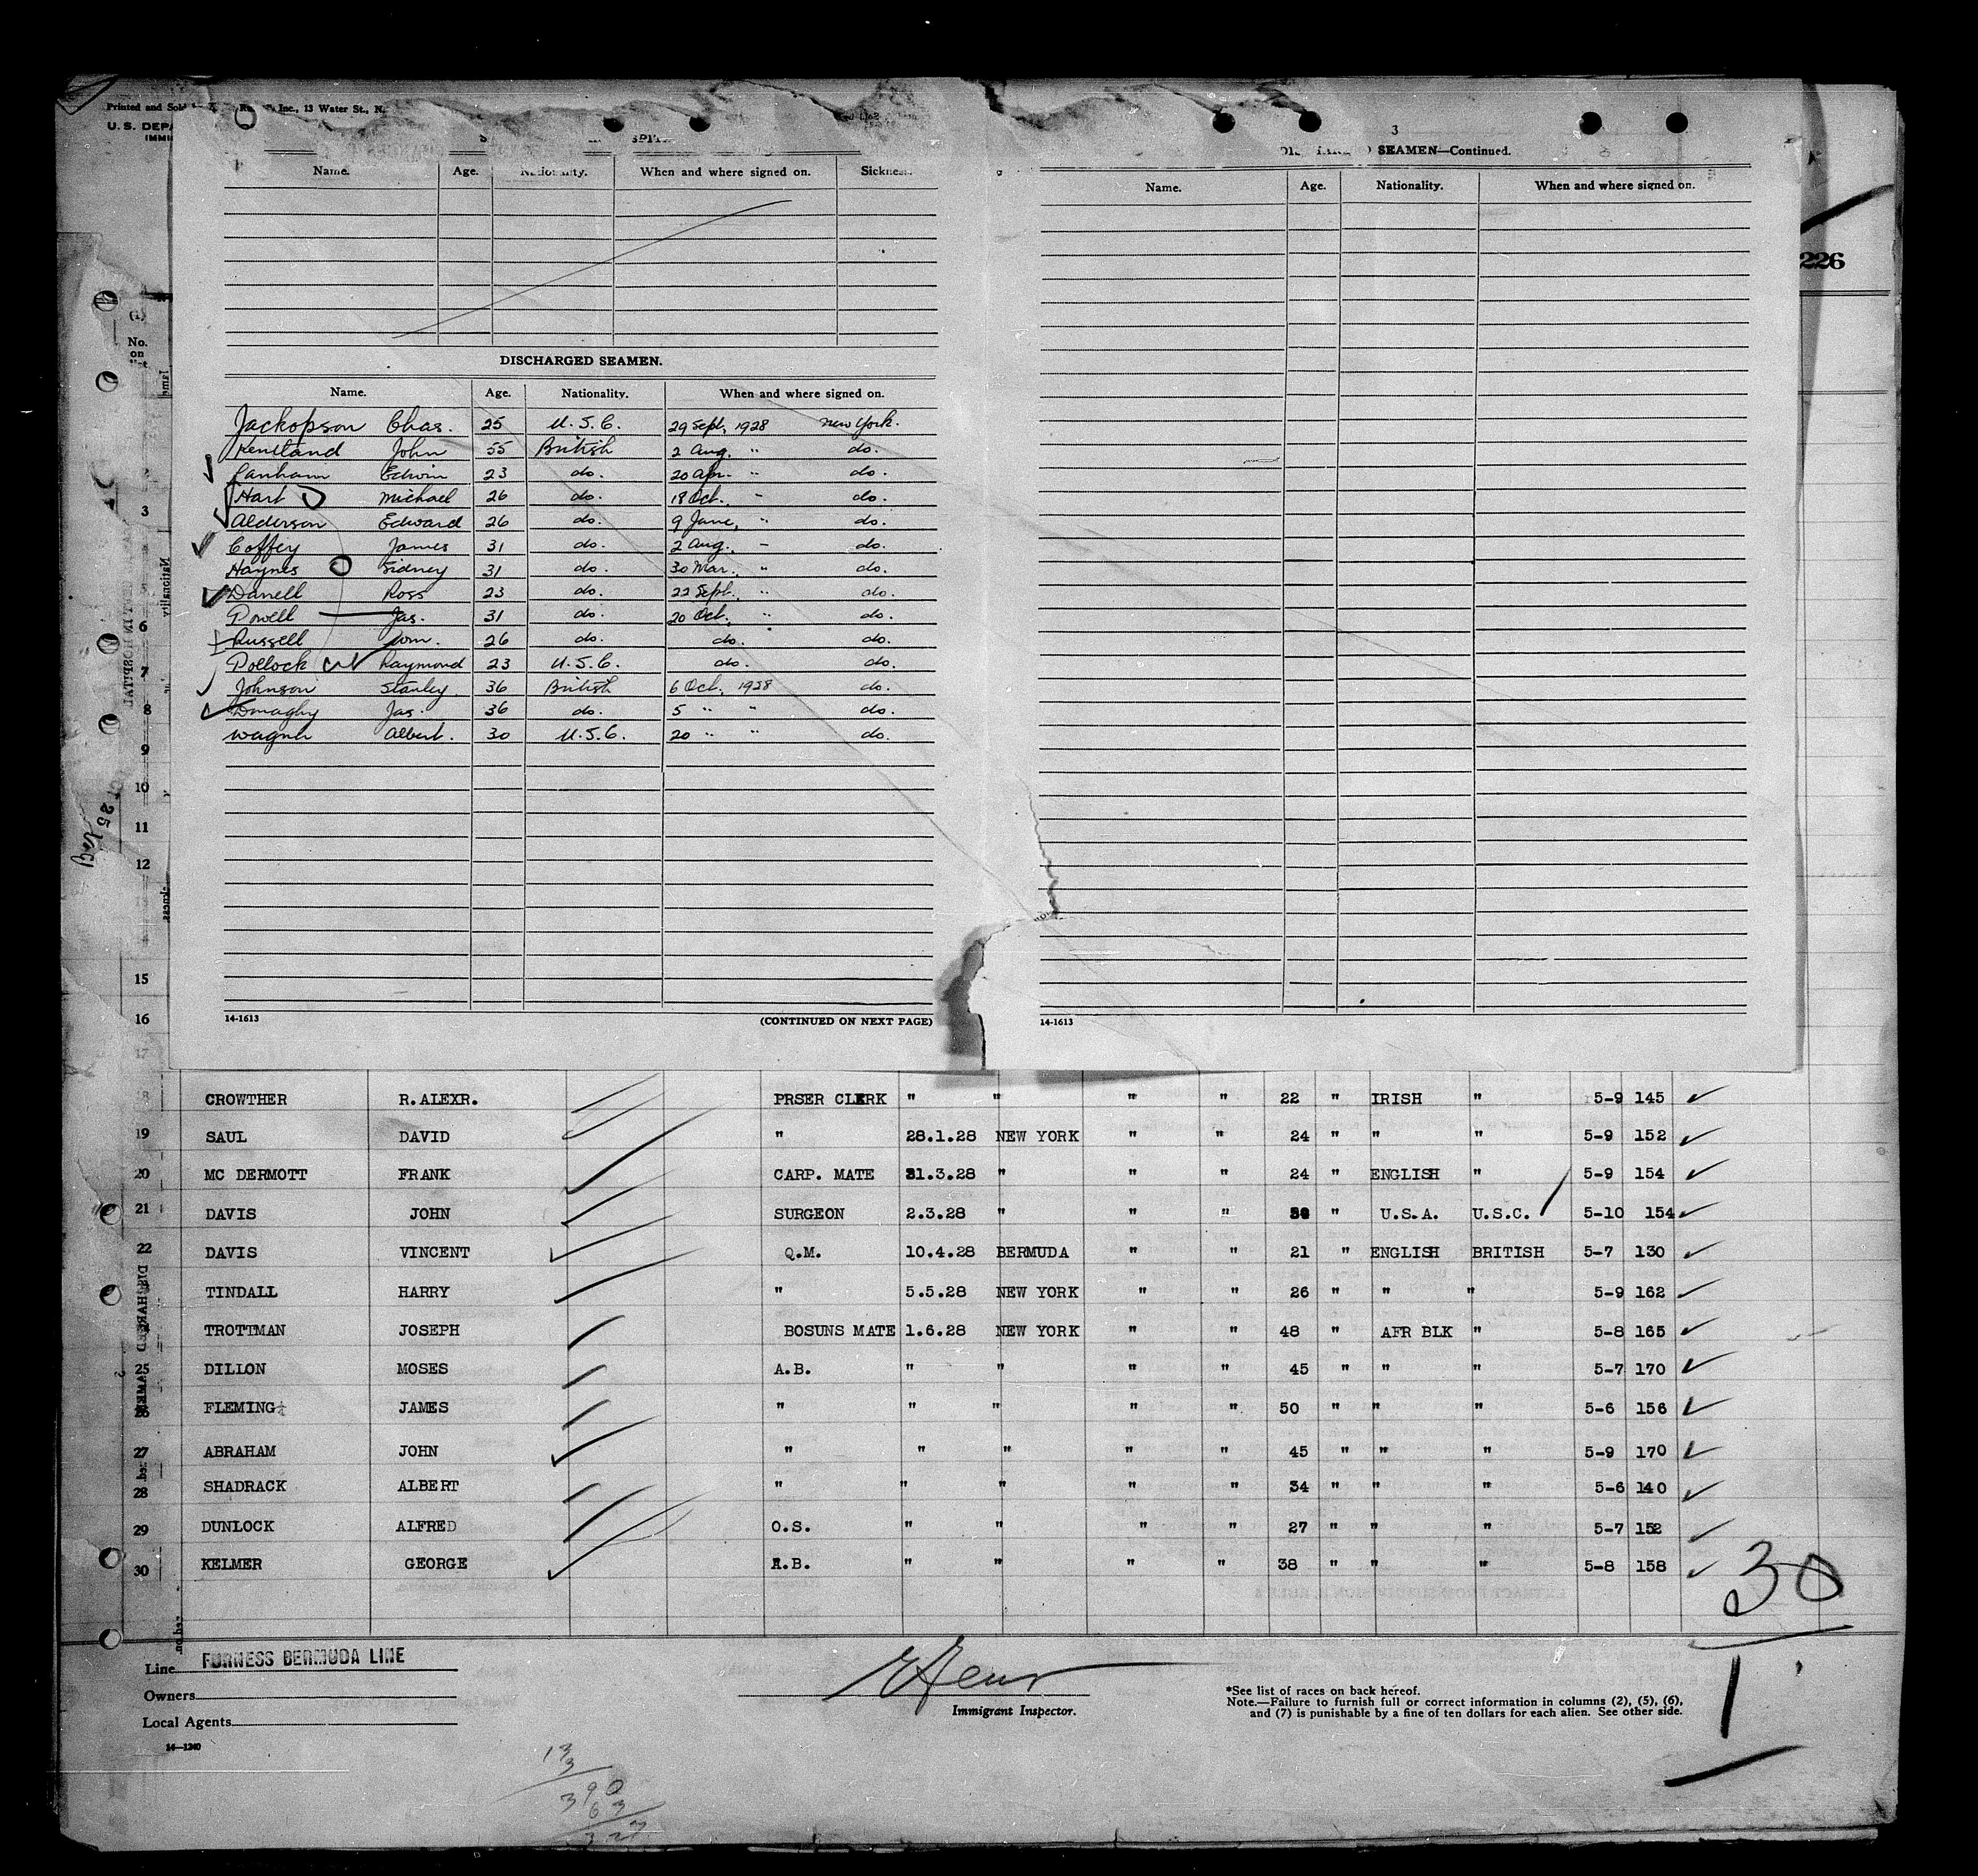 Printed and Sol Inc., 13 Water St., N.
U. S. DEPA
IMMI
226
Name. Age. Nationality. When and where signed on. Sickness.
DISCHARGED SEAMEN.
Name. Age. Nationality. When and where signed on.
Jackopson Chas. 25 U.S.C. 29 Sept. 1928 New York.
Kentland John 55 British 2 Aug. " do.
Lanham Edwin 23 do. 20 Apr. " do.
Hart Michael 26 do. 18 Oct. " do.
Alderson Edward 26 do. 9 June, " do.
Coffey James 31 do. 2 Aug. " do.
Haynes Sidney 31 do. 30 Mar. " do.
Darrell Ross 23 do. 22 Sept. " do.
Powell Jas. 31 do. 20 Oct. " do.
Russell Wm. 26 do. do. do.
Pollock Raymond 23 U.S.C. do. do.
Johnson Stanley. 36 British 6 Oct. 1928 do.
Jas. 36 do. 5 " " do.
Wagner Albert. 30 U.S.C. 20 " " do.
14-1613 (CONTINUED ON NEXT PAGE)
3
SEAMEN—Continued.
Name. Age. Nationality. When and where signed on.
14-1613
No.
on
3
6
7
8
9
10
11
12
15
16
17
CROWTHER R.ALEXR. PRSER CLERK " " " " 22 " IRISH " 5-9 145
19 SAUL DAVID " 28.1.28 NEW YORK " " 24 " " " 5-9 152
20 MC DERMOTT FRANK CARP. MATE 31.3.28 " " " 24 " ENGLISH " 5-9 154
21 DAVIS JOHN SURGEON 2.3.28 " " " " U.S.A. U.S.C. 5-10 154
22 DAVIS VINCENT Q.M. 10.4.28 BERMUDA " " 21 " ENGLISH BRITISH 5-7 130
TINDALL HARRY " 5.5.28 NEW YORK " " 26 " " " 5-9 162
TROTTMAN JOSEPH BOSUNS MATE 1.6.28 NEW YORK " " 48 " AFR BLK " 5-8 165
25 DILLON MOSES A.B. " " " " 45 " " " 5-7 170
26 FLEMING JAMES " " " " " 50 " " " 5-6 156
27 ABRAHAM JOHN " " " " " 45 " " " 5-9 170
28 SHADRACK ALBERT " " " " " 34 " " " 5-6 140
29 DUNLOCK ALFRED O.S. " " " " 27 " " " 5-7 152
30 KELMER GEORGE A.B. " " " " 38 " " " 5-8 158
30
1
Line FURNESS BERMUDA LINE
Owners
Local Agents
14—1240
Immigrant Inspector.
*See list of races on back hereof.
Note.—Failure to furnish full or correct information in columns (2), (5), (6),
and (7) is punishable by a fine of ten dollars for each alien. See other side.
13
3
390
63
327